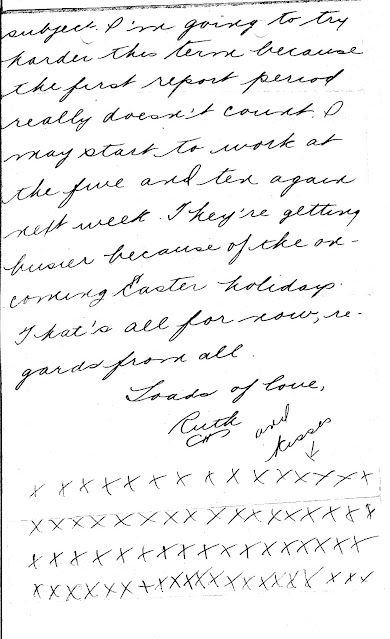 subject. I'm going to try
harder this term because
the first report period
really doesn't count. I
may start to work at
the five and ten again
next week. They're getting
busier because of the on-
coming Easter holidays.
That's all for now, re-
gards from all.
Loads of love,
Ruth
and
kisses
X X X X X X X X X X X X X X X
X X X X X X X X X X X X X X X X X
X X X X X X X X X X X X X X X X X
X X X X X X + X X X X X X X X X X X X X X